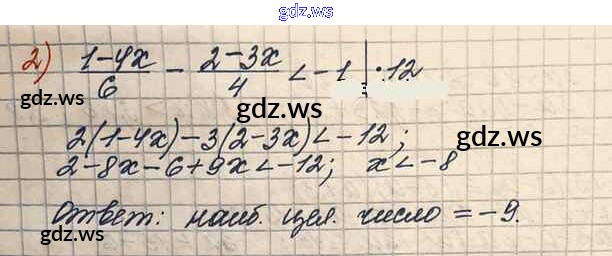 gdz.ws
2) (1-4x)/6 - (2-3x)/4 < -1 | ·12
gdz.ws
gdz.ws
gdz.ws
2(1-4x)-3(2-3x)<-12;
gdz.ws
2-8x-6+9x<-12; x<-8
Ответ: наиб. цел. число = -9.
gdz.ws
gdz.ws